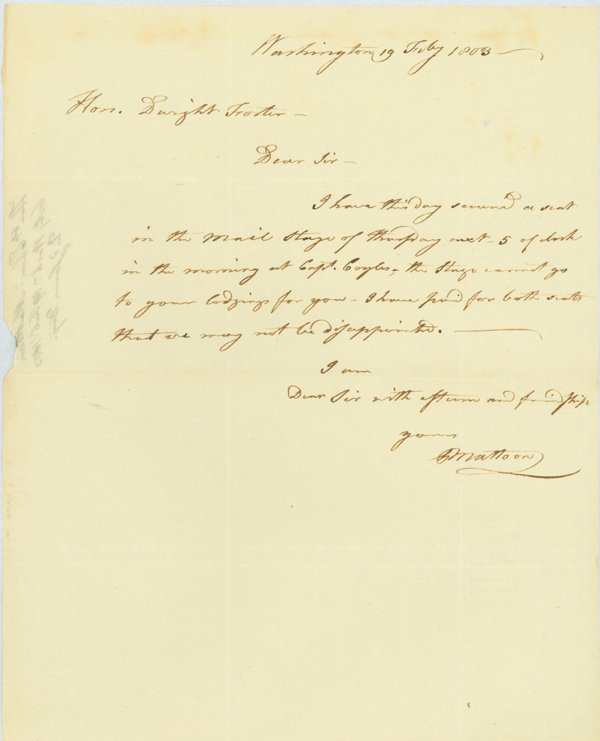 Washington 19 Feby 1803 —
Hon. Dwight Foster —
Dear Sir —
I have this day secured a seat
in the Mail Stage of Thursday next - 5 of clock
in the morning at Capt. Coyles, the Stage cannot go
to your lodgings for you - I have paid for both seats
that we may not be disappointed. —
I am
Dear Sir with esteem and friendship
yours
Mattoon